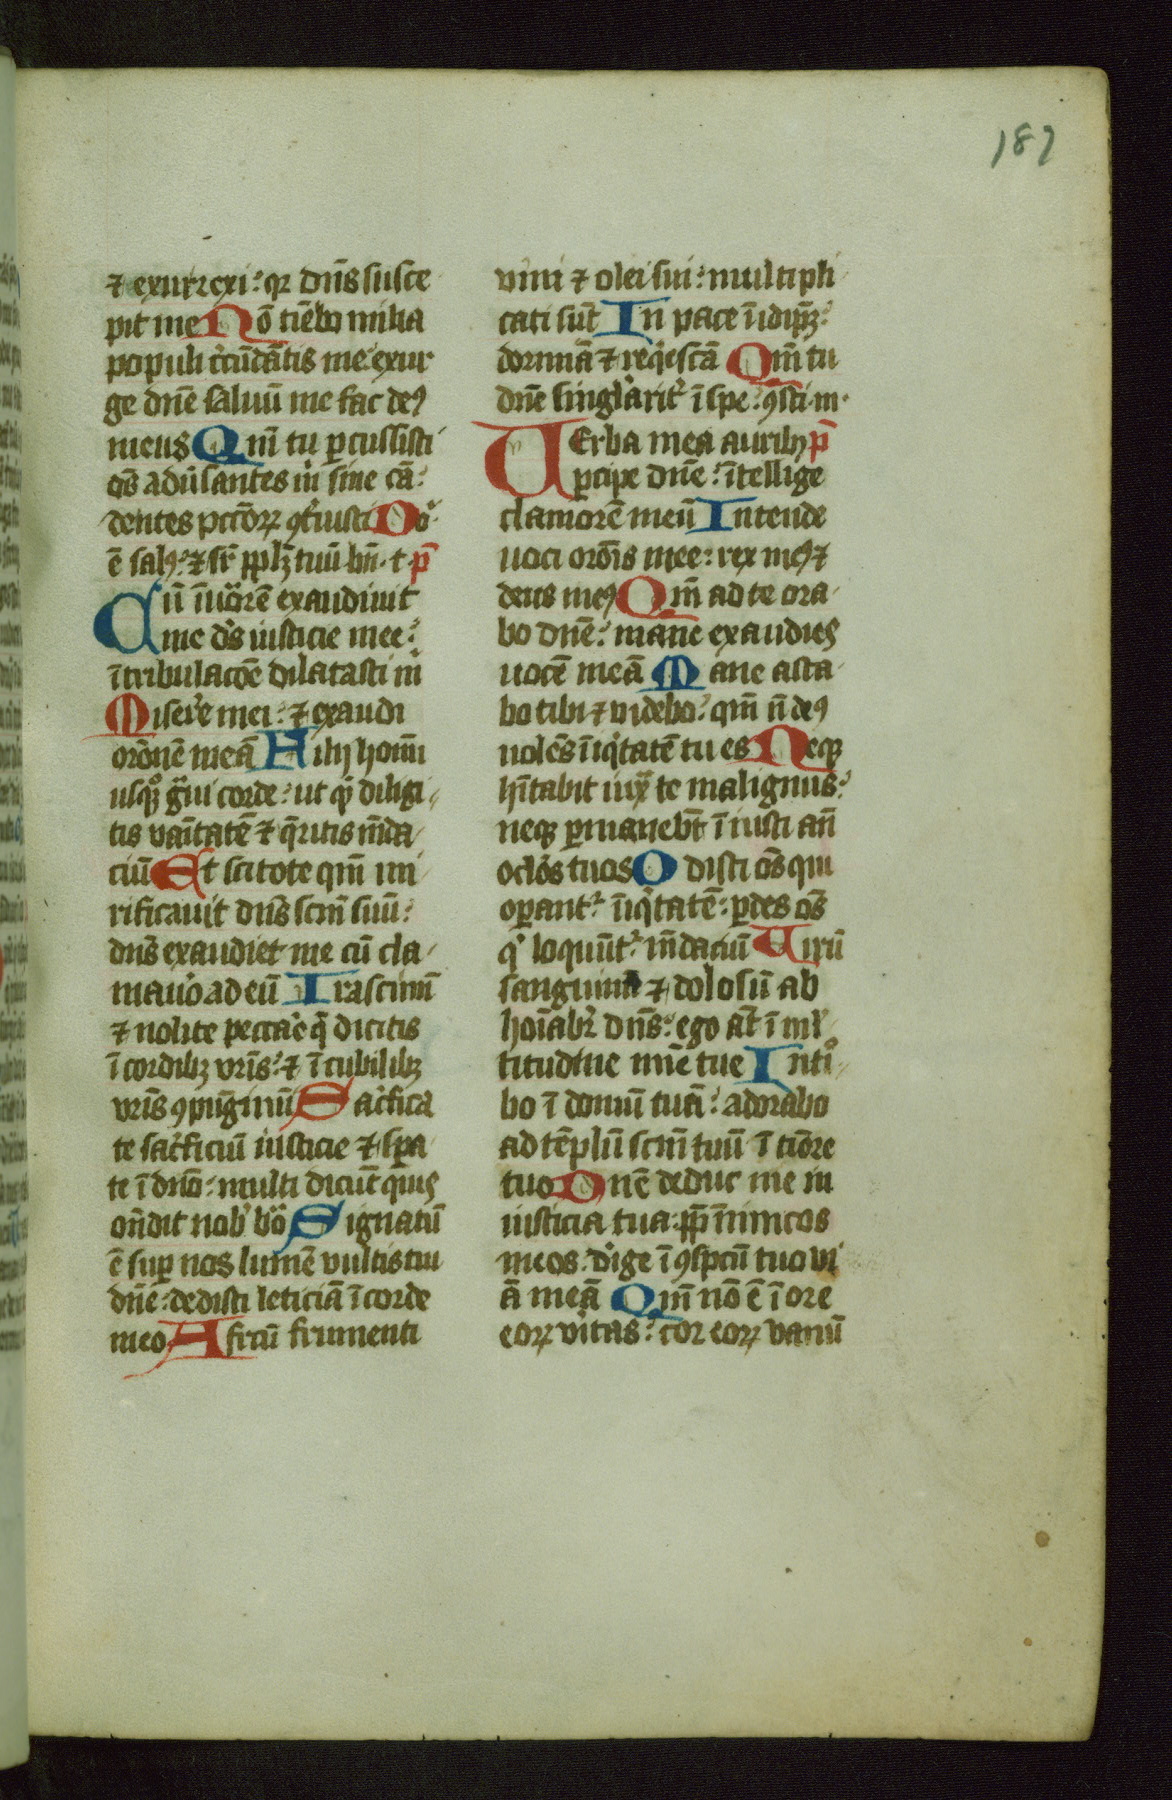 187
⁊ exurrexi: qꝛ dn̄s susce
pit me Nō timēbo milia
populi circūdātis me exur
ge dn̄e saluū me fac deꝰ
meus Qm̄ tu ꝑcussisti
oēs aduˀsantes m̄ sine cā:
dentes pctōꝝ ꝯtˀuisti Do
ē salꝰ: ⁊ sr̄ pplꝫ tuū bn̄. t. p̄
Cū īuocarē exaudiuit
me dˢ iusticie mee:
ī tribulacōe dilatasti m̄
Miserˀe mei: ⁊ exaudi
orōnem meā Filij homī
usqꝫ gͣui corde: ut qͥd diligi
tis vanitatē ⁊ qͣritis mēda
ciū Et scitote qm̄ mi
rificauit dn̄s scm̄ suū:
dn̄s exaudiet me cū cla
mauˀo ad eū Irascimī
⁊ nolite peccare qͥ dicitis
ī cordibꝫ vrīs: ⁊ ī cubilibꝫ
vrīs ꝯpūgimī Sacˀfica
te sacˀficiū iusticie ⁊ sꝑa
te ī dn̄o: multi dicūt qͥs
ostēdit nobˀ bōa Signatū
ē suꝑ nos lumē vultis tui
dn̄e: dedisti leticiā ī corde
meo A frcū frumenti
vini ⁊ olei sui: multipli
cati sūt In pace ī idip̄ꝫ:
dormiā ⁊ reqͥescā Qm̄ tu
dn̄e singlˀaritˀ ī spe: ꝯsti. m.
Uerba mea auribꝫ p̄
ꝑcipe dn̄e: ītellige
clamorē meū Intende
uoci orōis mee: rex meꝰ ⁊
deus meꝰ Qm̄ ad te ora
bo dn̄e: mane exaudies
uocē meā Mane asta
bo tibi ⁊ videbo: qm̄ n̄ deꝰ
uolēs īiqͥtatē tu es Neqꝫ
hītabit iuxͣ te malignus:
neqꝫ ꝑmanebūt ī iusti an̄
oclōs tuos Odisti oēs qui
oꝑantˀ īiqͥtatē: ꝑdes oēs
qͥ loquūtˀ mēdaciū Uirū
sanguinū ⁊ dolosū ab
hoīabrˀ dn̄s: ego āt ī mlˀ
titudīe mīe tue Intˀo
bo ī domū tuā: adorabo
ad tēplū scm̄ tuū ī tiōre
tuo Dn̄e deduc me in
iusticia tua: ꝓp̄ īimicos
meos: dˀige ī ꝯspcū tuo vi
ā meā Qm̄ nō ē ī ore
eoꝝ vˀitas: cor eoꝝ vanū